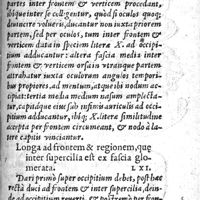 partes inter frontem & verticem procedant,
ibique inter se colligentur, quæd si oculus quoq;
duincire volueris, ducantur non iuxta priorem
vertem, sed per oculos, tum inter frontem &
verticem data in speciem litera X. ad occipi-
tium adducantur altera fascia media inter
frontem & verticem orsa in utranque partem
attrahatur iuxta oculorum angulos tempori-
bus propiores, ad mentum, atque ibi nodum ac-
cipiat: tertia media medium nasum amplecta-
tur, capiatque eius sub infimis auriculis ad occi-
pitium adducantur, ibiq; X. litera similitudine
accepta per frontem circumeant, & nodo à la-
tere capitis vinciantur.
Longa ad frontem & regionem, quę
inter supercilia est ex fascia glo-
merata. LXI.
Dari primò super occipitium debet, posthac
recta duci ad frontem & inter supercilia, dein-
de ad occipitium reverti, & postremò per fron-